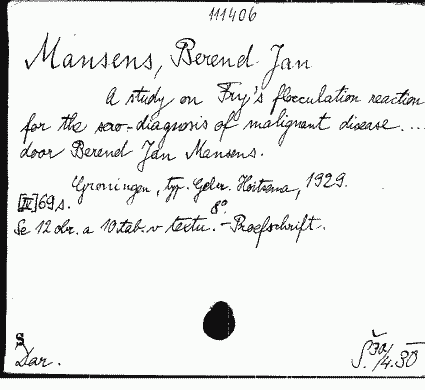 111406
Mansens, Berend Jan
A study on Fry's flocculation reaction
for the sero-diagnosis of malignant disease....
door Berend Jan Mansens.
Groningen, typ. Gebr. Hoitsema, 1929.
[II] 69 s. 8°.
Se 12 obr. a 10 tab. v textu. - Proefschrift.
S
Dar.
30/4.30